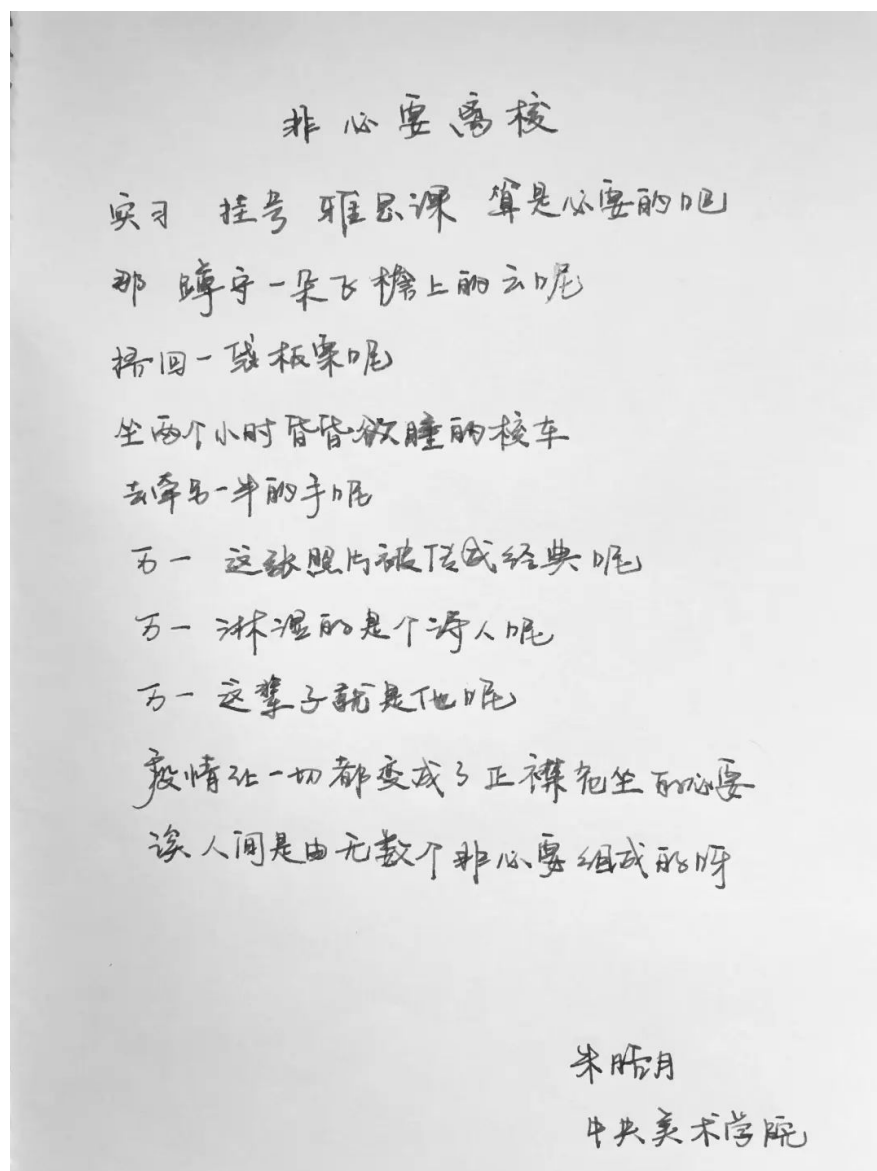 非必要离校
实习 挂号 雅思课 算是必要的吧
那 蹲守一朵飞檐上的云呢
捎回一袋板栗呢
坐两个小时昏昏欲睡的校车
去牵另一半的手呢
万一 这张照片被传成经典呢
万一 淋湿的是个诗人呢
万一 这辈子就是他呢
疫情让一切都变成了正襟危坐的必要
误人间是由无数个非必要组成的呀
朱皓月
中央美术学院